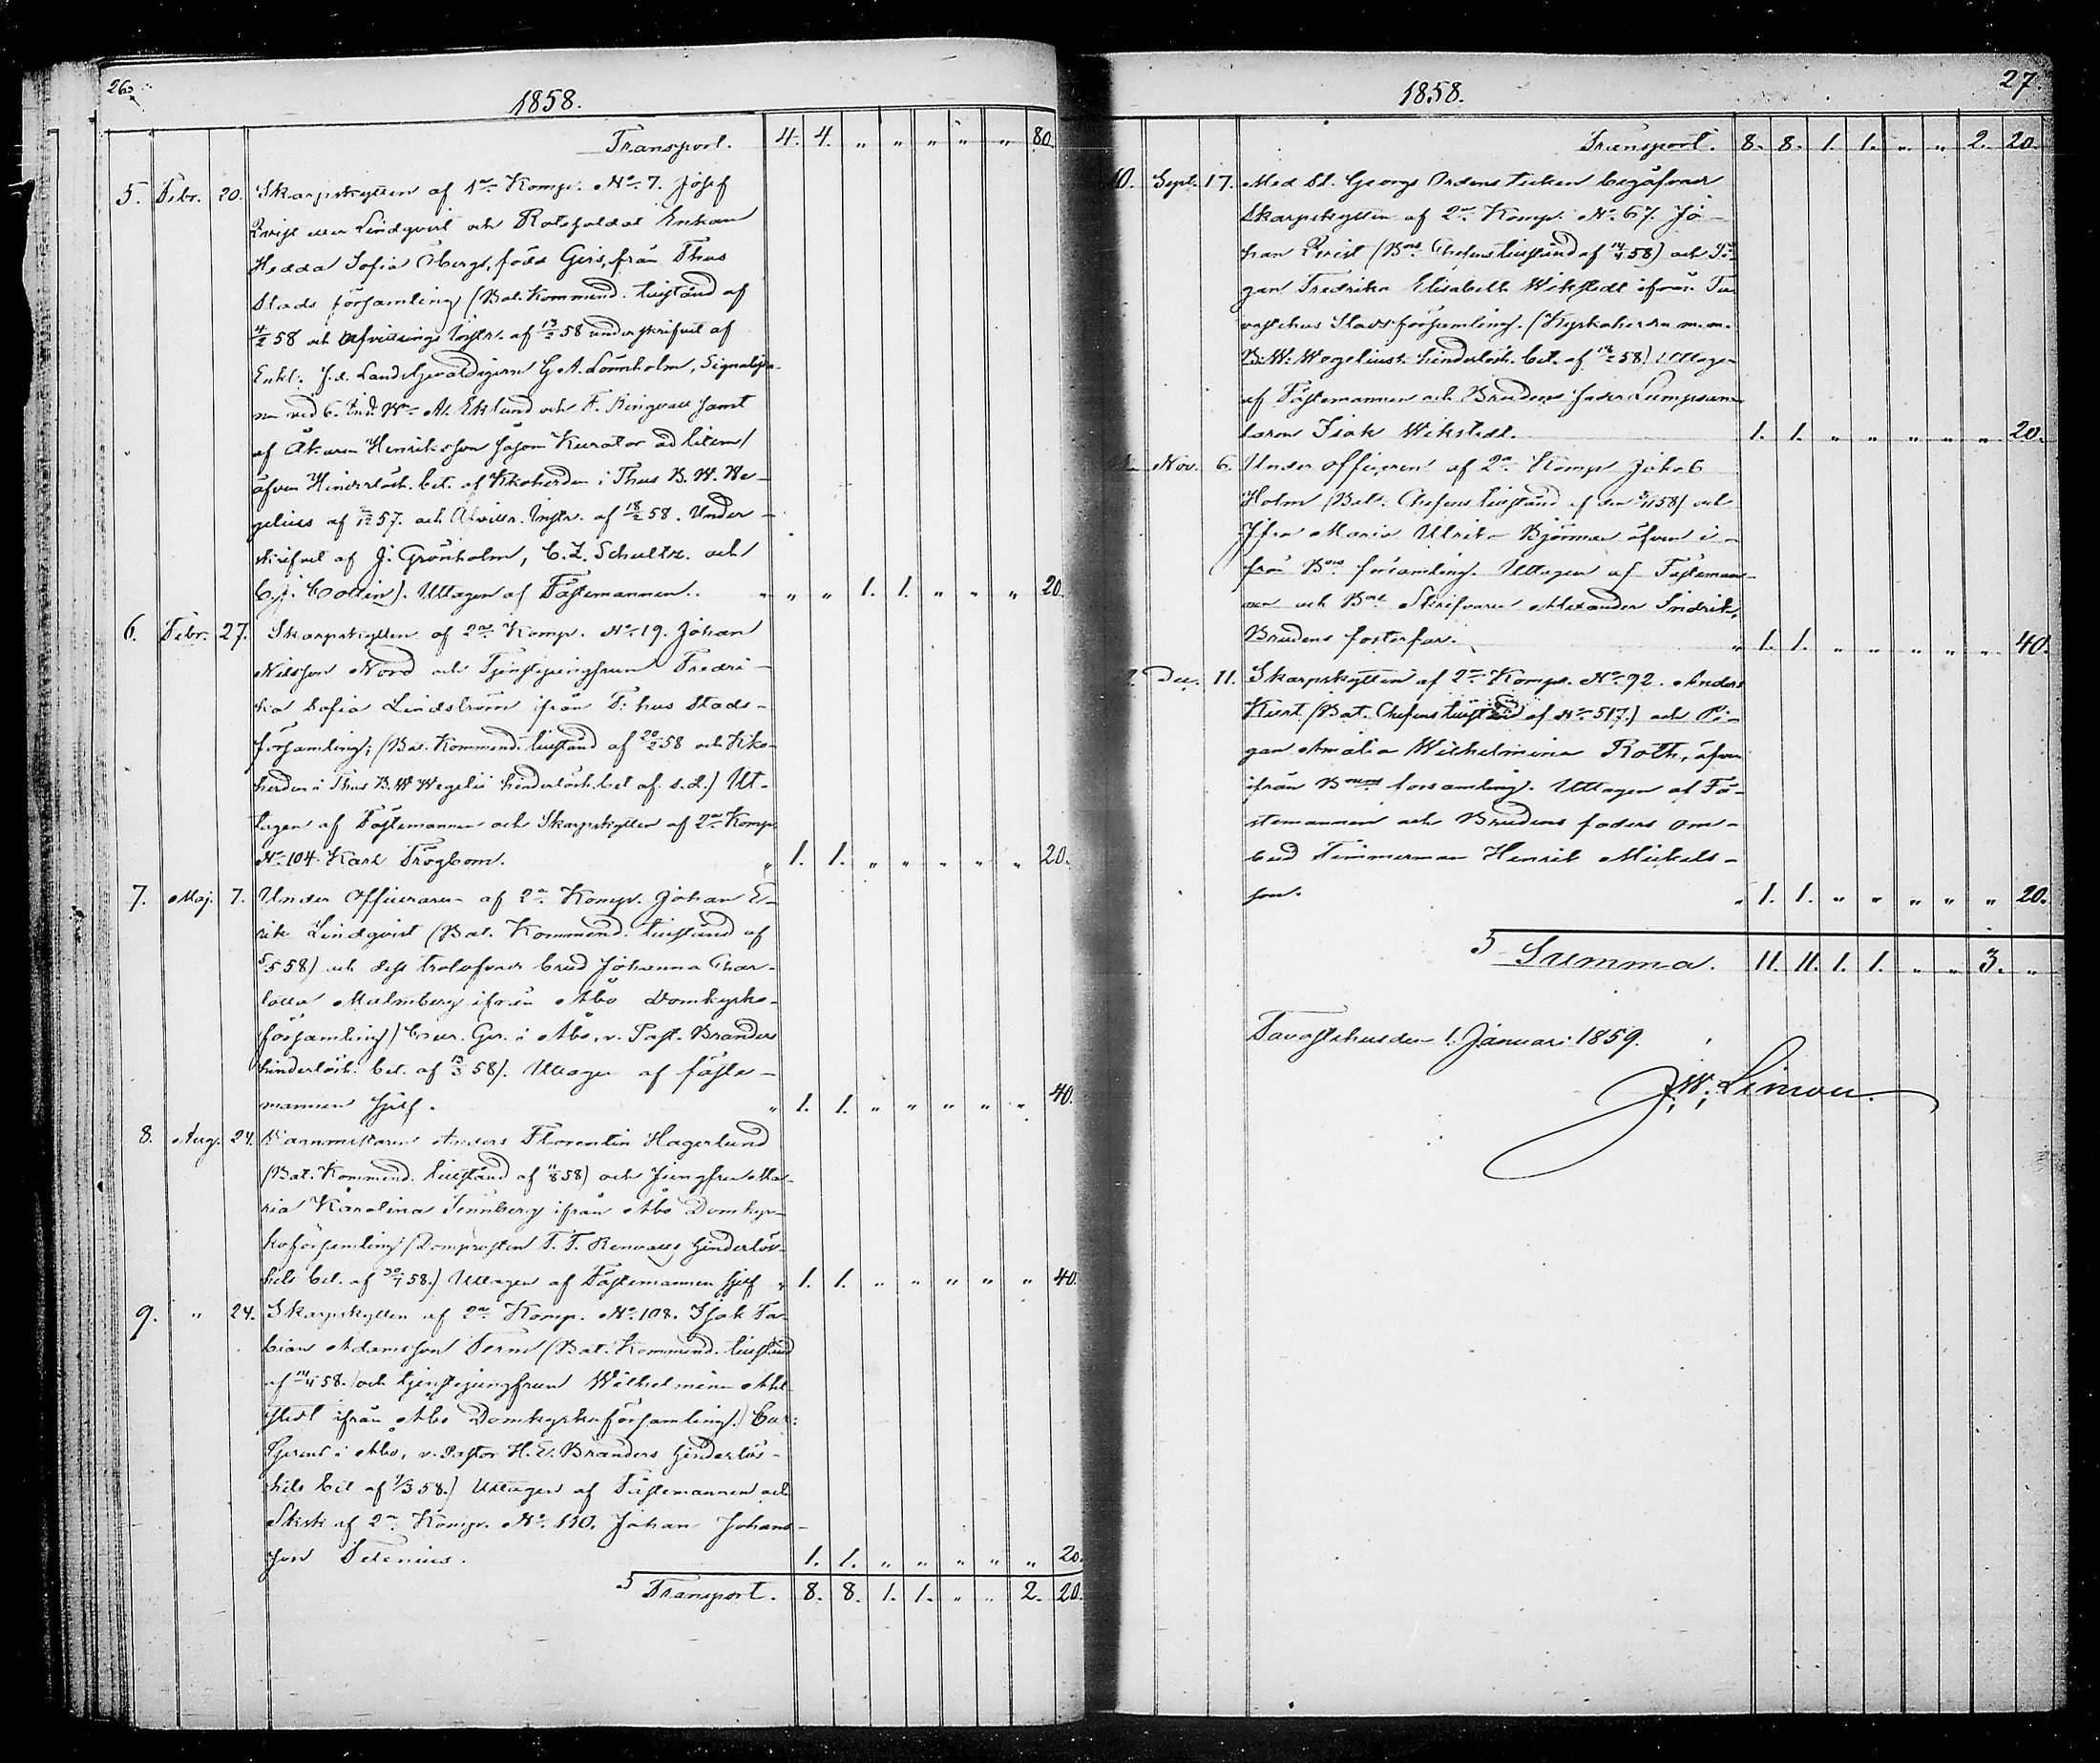 26.
1858.
Transport. 4. 4. " " " " " 80.
5. Febr. 20. Skarpskytten af 1a Komp. No 7. Josef
Qvist eller Lindqvist och Rotesoldat Enkan
Hedda Sofia Öbergs, född Gers, från Thus
Stads församling (Bat. Kommend. tillstånd af
4/2 58 och Afvittrings Instr. af 13/2 58 underskrifvit af
Enkl. f.d. Landsgevaldigern G. A. Lönnholm, Signalista-
ne ved 6. Ekl. och F. Ringvall samt
af Åkaren Henriksson såsom Kurator ad litem/
äfven Hinderlösh. bet. af Kkoherden i Thus B. W. We-
gelius af 2/12 57. och Afvittr. Instr. af 18/2 58. Under-
skrifvet af J. Grönholm, C. Z. Schultz. och
C. J. Collin). Uttagen af Fästemannen. " " " 1. 1. " " " 20.
6. Febr. 27. Skarpskytten af 2a Komp. No 19. Johan
Nilsson Nord och Tjenstejungfrun Fredri-
ka Sofia Lindström ifrån T: hus Stads-
församling; (Bat. Kommend. tillstånd af 20/2 58 och Kko-
herden i Thus B. W. Wegelii hinderlösh. bet af s. d.) Ut-
tagen af Fästemannen och Skarpskytten af 2a Komp.
No 104. Karl Trögbom. " 1. 1. " " " " " 20.
7. Maj. 7. Under Officeraren af 2a Komp. Johan E-
rik Lindqvist (Bat. Kommend. tillstånd af
5/5 58) och dess trolofvade brud Johanna Char-
lotta Malmberg ifrån Åbo Domkyrko-
församling) Cur. Ger. i Åbo, v. Past. Branders
hinderlösh. bet. af 13/3 58). Uttagen af fäste-
mannen sjelf. " 1. 1. " " " " " 40.
8. Aug. 24. Anders Florentin Hagerlund
(Bat. Kommend. tillstånd af 11/8 58) och Jungfru Ma-
ria Karolina Tennberg ifrån Åbo Domkyr-
koförsamling (Domprosten T. T. Renvalls hinderlös-
hets bet. af 30/7 58.) Uttagen af Fästemannen sjelf " 1. 1. " " " " " 40.
9. " 24. Skarpskytten af 2a Komp. No 108. Isak Fa-
bian Adamsson Ferm (Bat. Kommend. tillstånd
af 14/4 58.) och tjenstejungfrun Wilhelmina Ahl-
stedt ifrån Åbo Domkyrkoförsamling.) Cur:
Gerens i Åbo, v. Pastor H. E. Branders hinderlös-
hets bet af 1/3 58.) Uttagen af Fästemannen och
Skisk af 2a Komp. No 130. Johan Johans-
son Selenius. 1. 1. " " " " " 20.
Transport. 8. 8. 1. 1. " " 2. 20.
27.
1858.
Transport. 8. 8. 1. 1. " " 2. 20.
10. Sept. 17. Med St. Georgs Ordens tecken begåfvad
Skarpskytten af 2a Komp. No 67. Jo-
han Qvist (Bns Chefens tillstånd af 14/4 58) och Pi-
gan Fredrika Elisabeth Wikstedt ifrån Ta-
vastehus Stadsförsamling. (Kyrkoherden m. m.
B. W. Wegelius's hinderlösh. bet. af 58) Uttagen
af Fästemannen och Brudens fader Lumpsam-
laren Isak Wikstedt. 1. 1. " " " " " 20.
Nov. 6. Under officeren af 2a Komp Jakob
Holm (Bat. Chefens tillstånd af den 5/11 58) och
Jfrn Maria Ulrika Björman äfven i-
från Bns församling. Uttagen af Fästeman-
nen och Bns Skrifvaren Alexander Indrik,
Brudens fosterfar. " 1. 1. " " " " " 40.
Dec. 11. Skarpskytten af 2a Komp. No 92. Anders
Kurt (Bat. Chefens tillstånd af No 517.) och Pi-
gan Amalia Wilhelmina Roth, äfven
ifrån Bnens församling. Uttagen af Fä-
stemannen och Brudens faders om-
bud Timmerman Henrik Mickels-
son. " 1. 1. " " " " " 20.
Summa. 11. 11. 1. 1. " " 3. "
Tavastehus den 1. Januari 1859.
J. W. Limon.